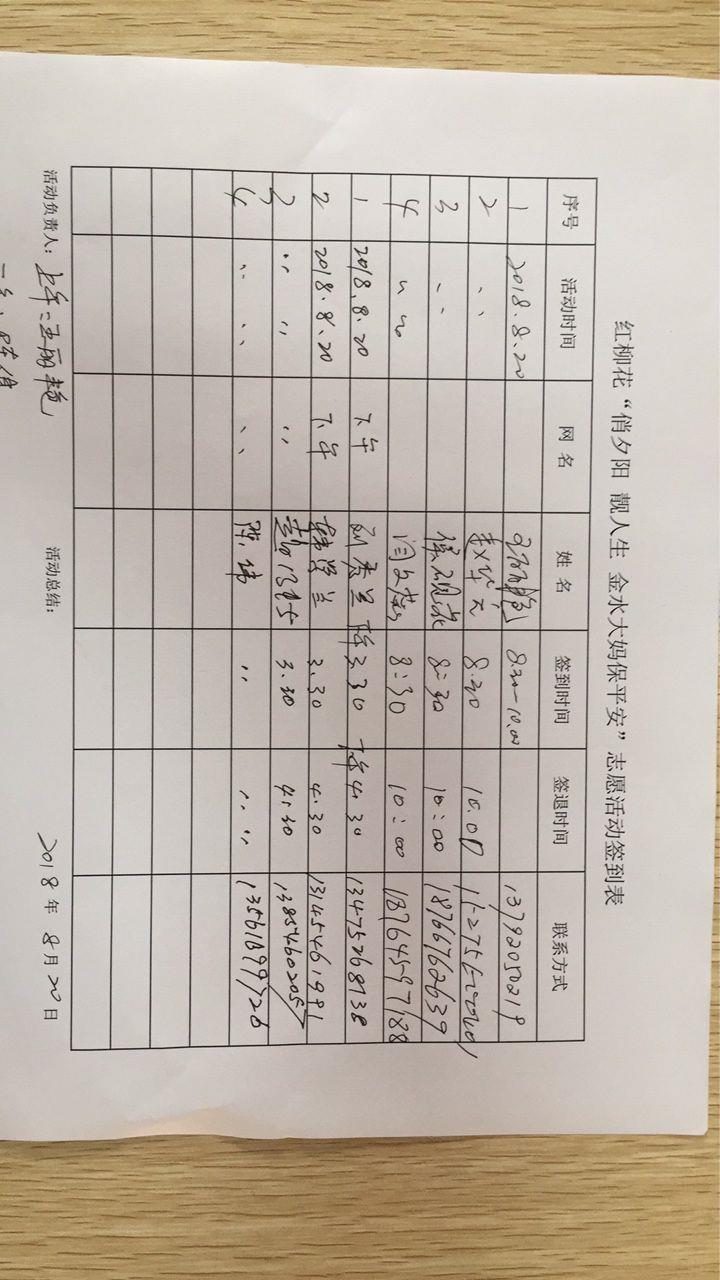 红柳花“俏夕阳 靓人生 金水大妈保平安”志愿活动签到表
序号 活动时间 网名 姓名 签到时间 签退时间 联系方式
1 2018.8.20 8.30-10.00 13792050219
2 〃 8.30 10.00
3 〃 8:30 10:00 18766762639
4 〃 〃 闫文蕊 8:30 10:00 18764597188
1 2018.8.20 下午 刘秀兰 3.30 下午4.30 13475268738
2 2018.8.20 下午 韩学兰 3.30 4.30 13145461991
3 〃 〃 〃 3.30 4.30 13854602057
4 〃 〃 〃 陈伟 〃 〃 〃 13561699726
活动负责人: 上午:王丽艳 活动总结: 2018年8月20日
陈伟